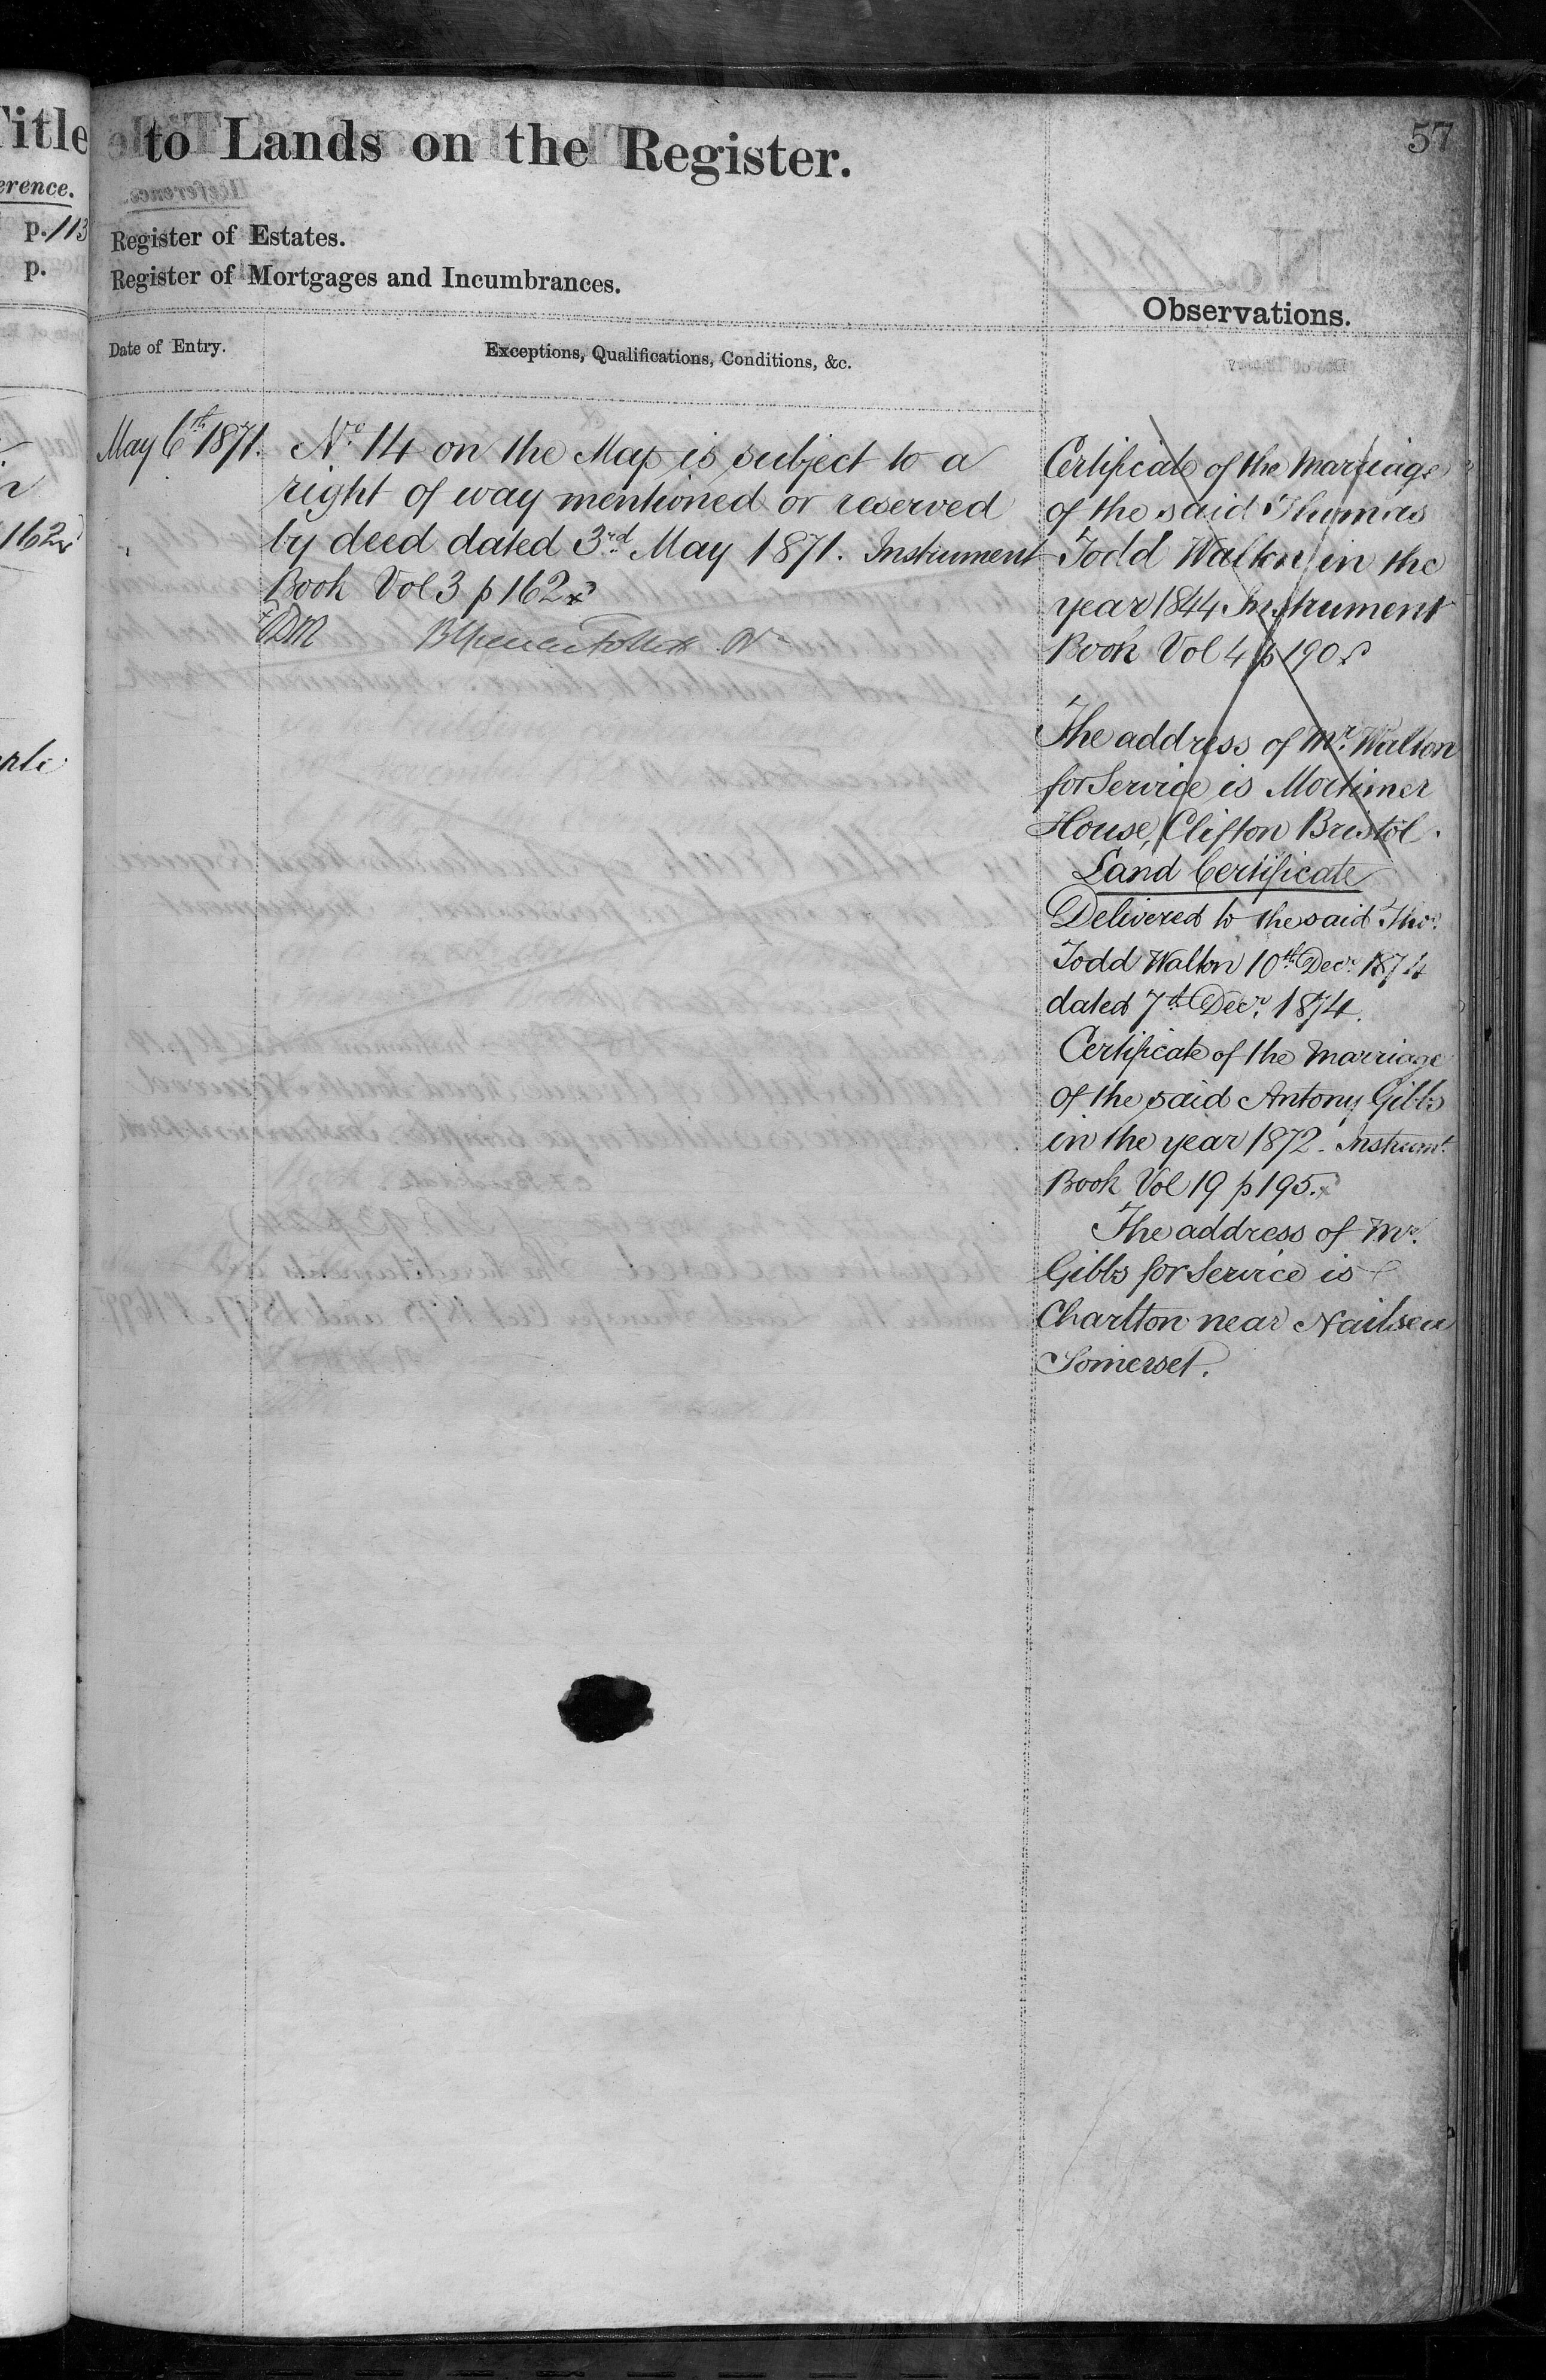 Title
erence.
p. 113
p.
162
to Lands on the Register.
57
Register of Estates.
Register of Mortgages and Incumbrances.
Observations.
Date of Entry.
Exceptions, Qualifications, Conditions, &c.
May 6th 1871.
No. 14 on the Map is subject to a
right of way mentioned or reserved
by deed dated 3rd May 1871. Instrument
Book Vol 3 p 162
Certificate of the Marriage
of the said Thomas
Todd Walton in the
year 1844 Instrument
Book Vol 4 p 190
The address of Mr. Walton
for Service is Mortimer
House, Clifton Bristol.
Land Certificate
Delivered to the said Thos.
Todd Walton 10th Decr. 1874
dated 7th Decr. 1874.
Certificate of the Marriage
of the said Antony Gibbs
in the year 1872. Instrumt.
Book Vol 19 p 195.
The address of Mr.
Gibbs for Service is
Charlton near Nailsea
Somerset.